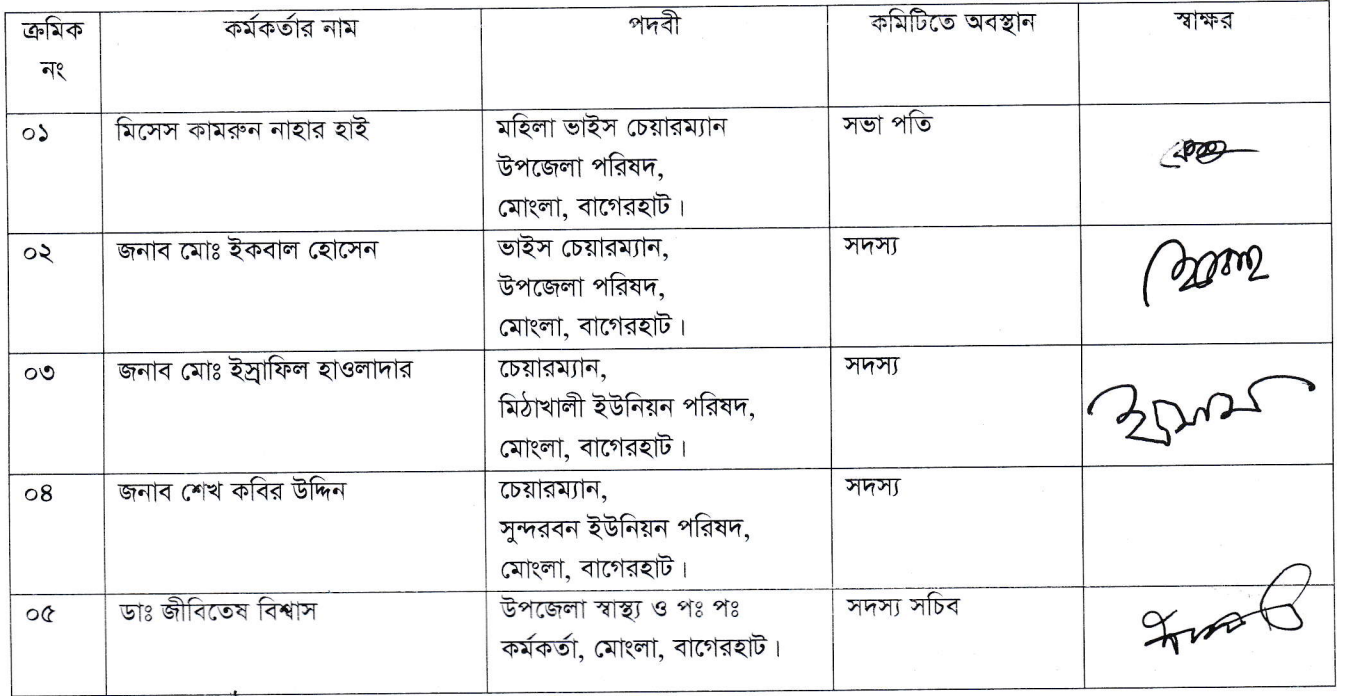 ক্রমিক নং কর্মকর্তার নাম পদবী কমিটিতে অবস্থান স্বাক্ষর
০১ মিসেস কামরুন নাহার হাই মহিলা ভাইস চেয়ারম্যান সভা পতি
উপজেলা পরিষদ,
মোংলা, বাগেরহাট।
০২ জনাব মোঃ ইকবাল হোসেন ভাইস চেয়ারম্যান, সদস্য
উপজেলা পরিষদ,
মোংলা, বাগেরহাট।
০৩ জনাব মোঃ ইস্রাফিল হাওলাদার চেয়ারম্যান, সদস্য
মিঠাখালী ইউনিয়ন পরিষদ,
মোংলা, বাগেরহাট।
০৪ জনাব শেখ কবির উদ্দিন চেয়ারম্যান, সদস্য
সুন্দরবন ইউনিয়ন পরিষদ,
মোংলা, বাগেরহাট।
০৫ ডাঃ জীবিতেষ বিশ্বাস উপজেলা স্বাস্থ্য ও পঃ পঃ সদস্য সচিব
কর্মকর্তা, মোংলা, বাগেরহাট।